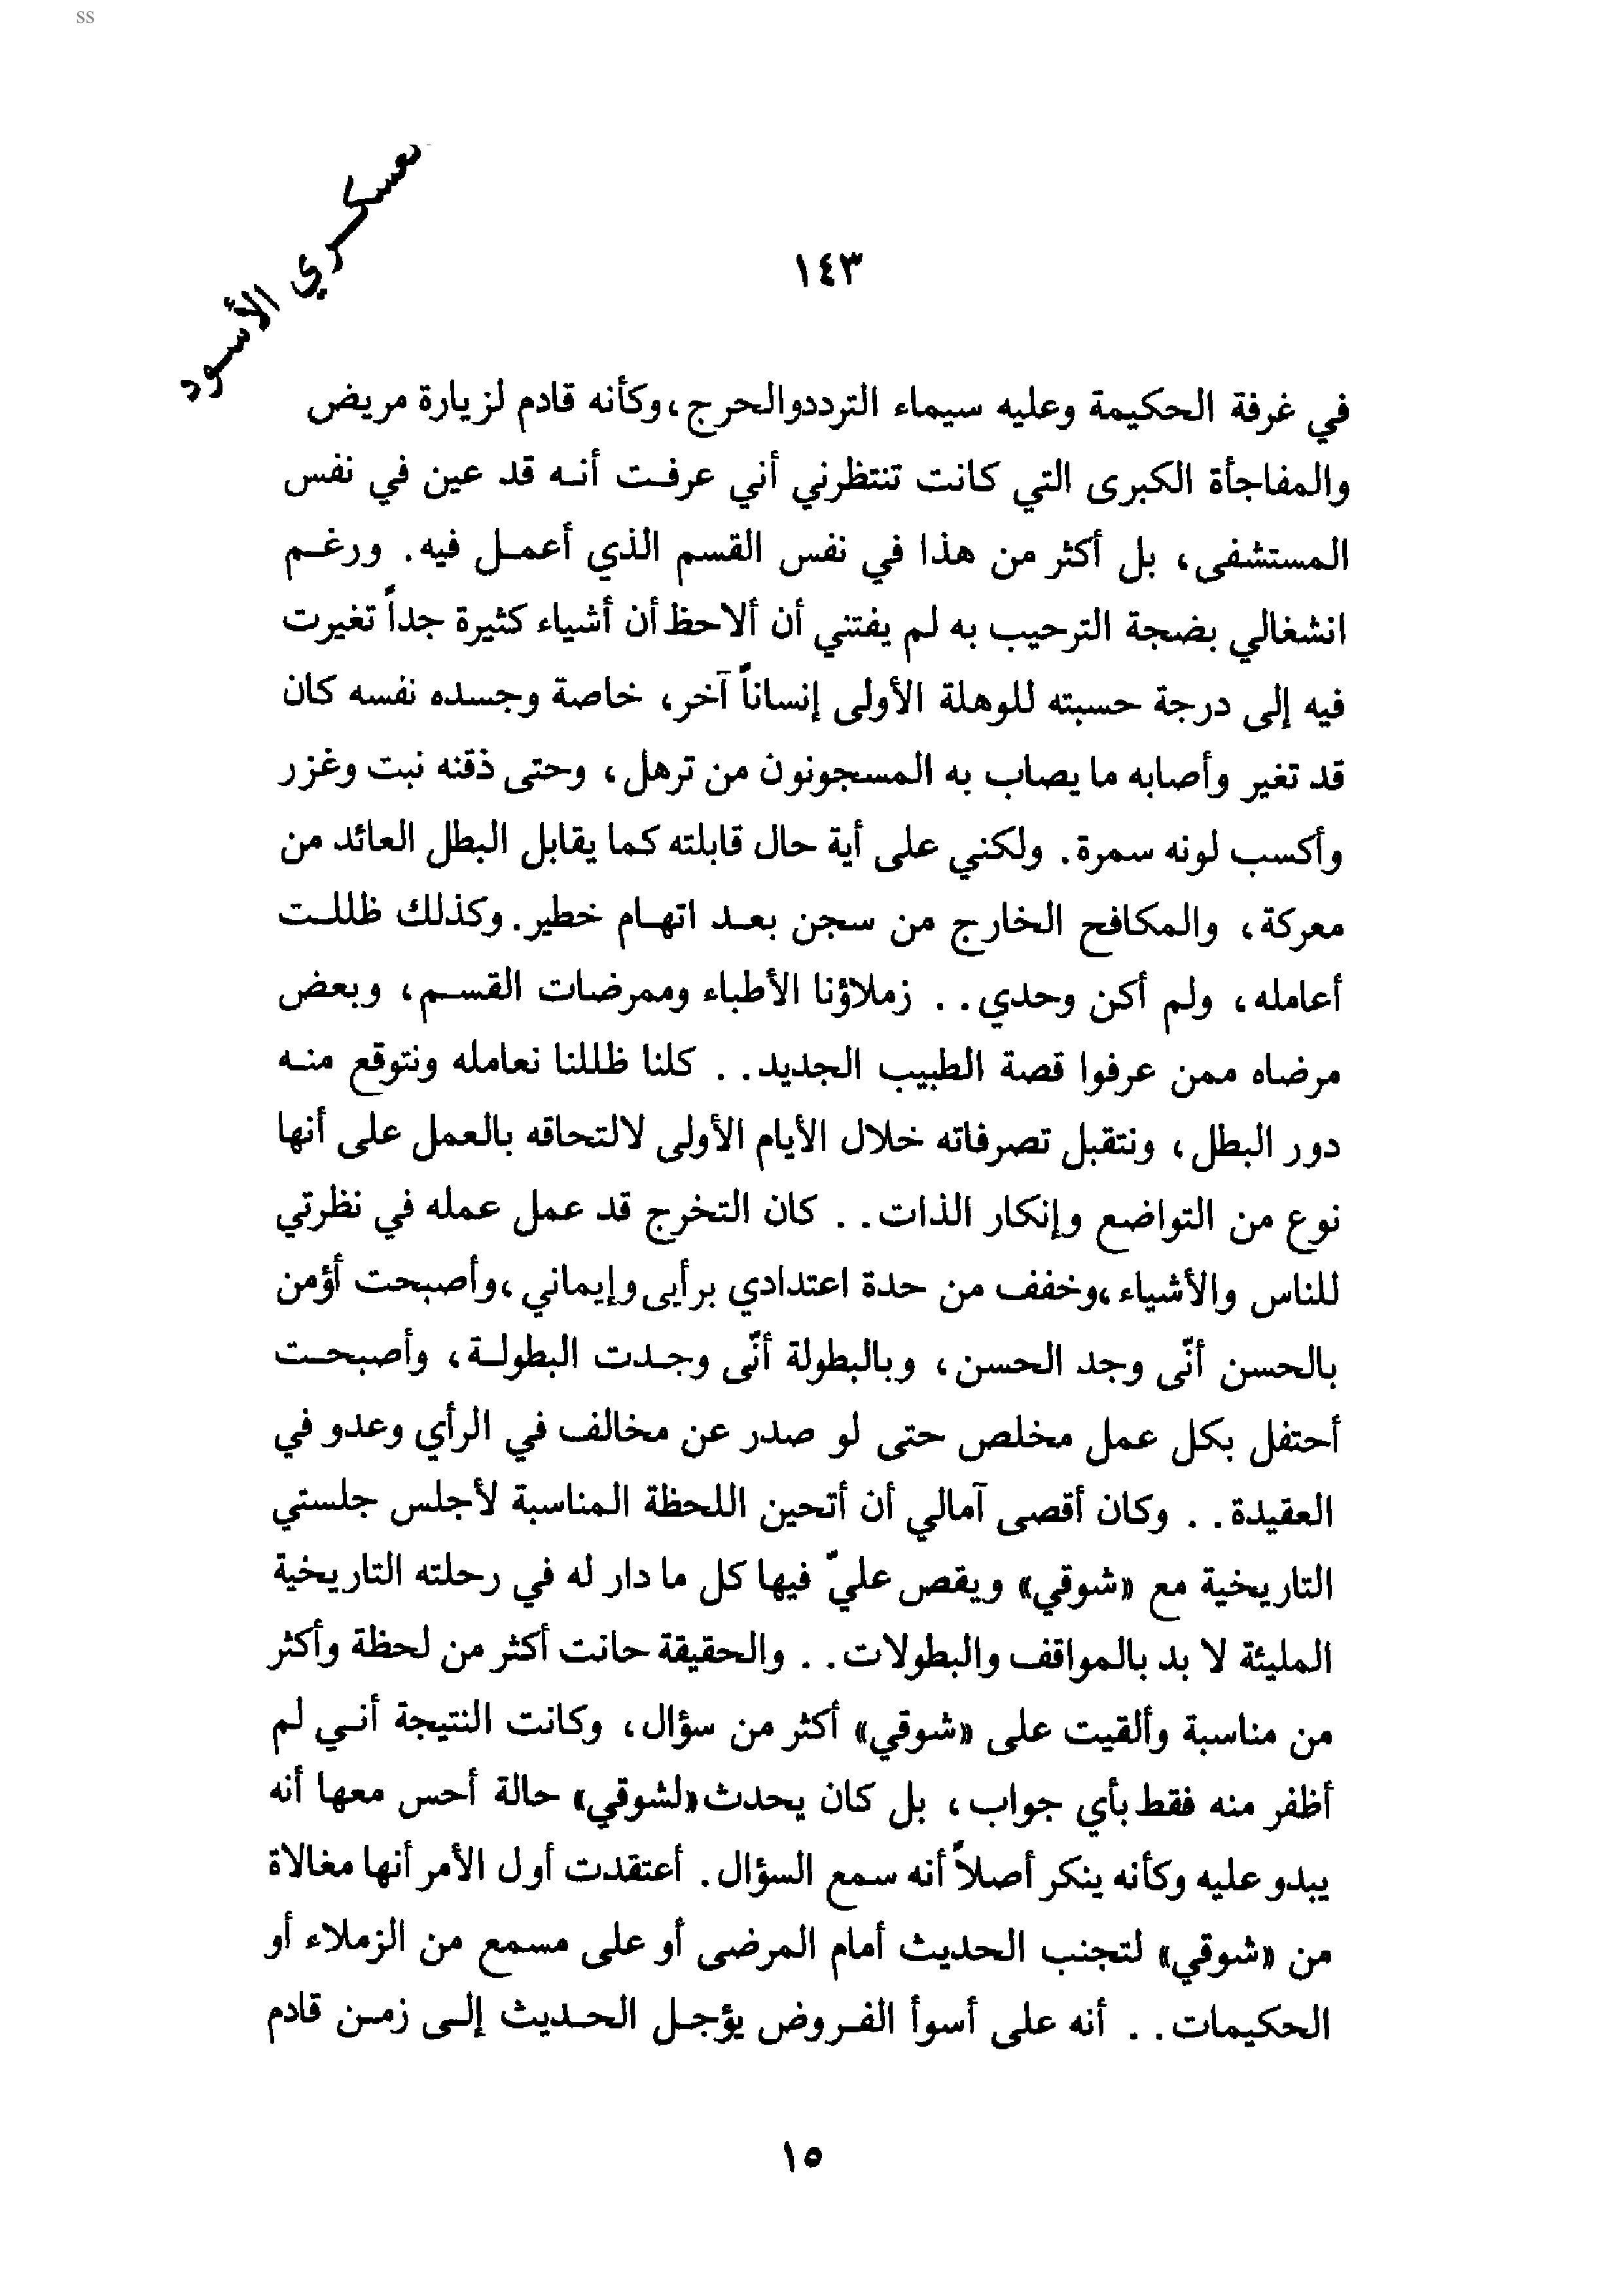 ss
العسكري الأسود
١٤٣
في غرفة الحكيمة وعليه سيماء الترددوالحرج ،وكأنه قادم لزيارة مريض
والمفاجأة الكبرى التي كانت تنتظرني أني عرفت أنه قد عين في نفس
المستشفى ، بل أكثر من هذا في نفس القسم الذي أعمل فيه . ورغم
انشغالي بضجة الترحيب به لم يفتني أن ألاحظ أن أشياء كثيرة جداً تغيرت
فيه إلى درجة حسبته للوهلة الأولى إنساناً آخر ، خاصة وجسده نفسه كان
قد تغير وأصابه ما يصاب به المسجونون من ترهل ، وحتى ذقنه نبت وغزر
وأكسب لونه سمرة . ولكني على أية حال قابلته كما يقابل البطل العائد من
معركة ، والمكافح الخارج من سجن بعد اتهام خطير . وكذلك ظللت
أعامله ، ولم أكن وحدي . . زملاؤنا الأطباء وممرضات القسم ، وبعض
مرضاه ممن عرفوا قصة الطبيب الجديد . . كلنا ظللنا نعامله ونتوقع منه
دور البطل ، ونتقبل تصرفاته خلال الأيام الأولى لالتحاقه بالعمل على أنها
نوع من التواضع وإنكار الذات . . كان التخرج قد عمل عمله في نظرتي
للناس والأشياء ،وخفف من حدة اعتدادي برأيى وإيماني ،وأصبحت أؤمن
بالحسن أنّى وجد الحسن ، وبالبطولة أنّى وجدت البطولة ، وأصبحت
أحتفل بكل عمل مخلص حتى لو صدر عن مخالف في الرأي وعدو في
العقيدة . . وكان أقصى آمالي أن أتحين اللحظة المناسبة لأجلس جلستي
التاريخية مع «شوقي» ويقص عليّ فيها كل ما دار له في رحلته التاريخية
المليئة لا بد بالمواقف والبطولات . . والحقيقة حانت أكثر من لحظة وأكثر
من مناسبة وألقيت على «شوقي» أكثر من سؤال ، وكانت النتيجة أني لم
أظفر منه فقط بأي جواب ، بل كان يحدث «لشوقي» حالة أحس معها أنه
يبدو عليه وكأنه ينكر أصلاً أنه سمع السؤال . أعتقدت أول الأمر أنها مغالاة
من «شوقي» لتجنب الحديث أمام المرضى أو على مسمع من الزملاء أو
الحكيمات . . أنه على أسوأ الفروض يؤجل الحديث إلى زمن قادم
١٥